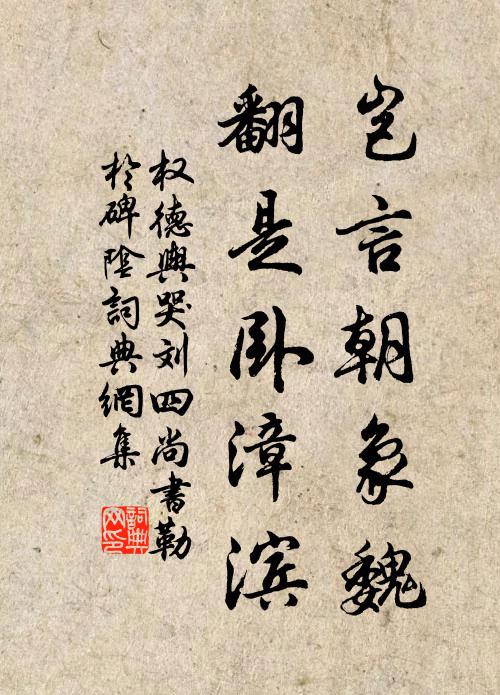 岂言朝象魏
翻是卧漳滨
权德舆哭刘四尚书勒
於碑阴詞典網集
詞典
网印